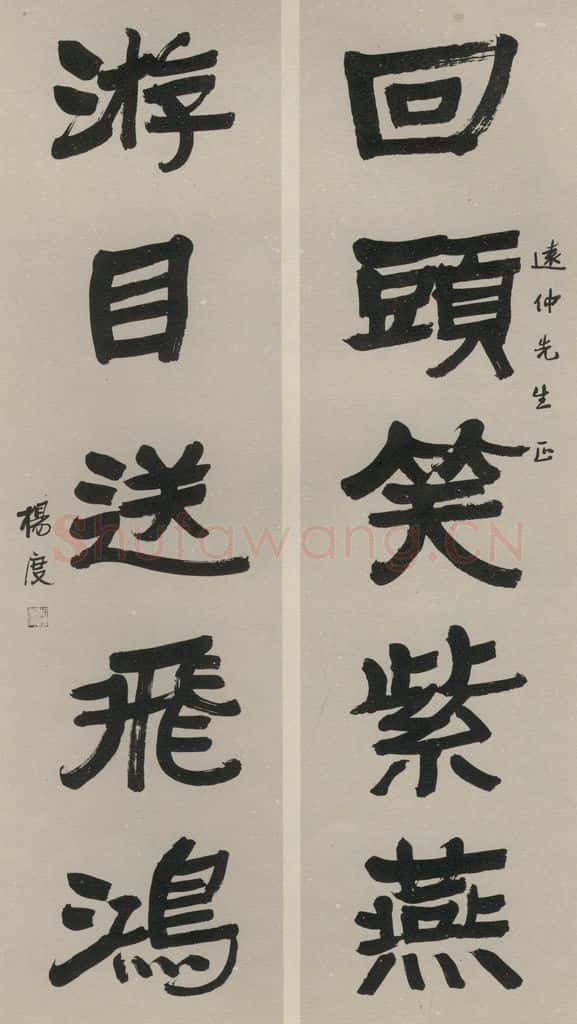 回頭笑紫燕
遠仲先生正
游目送飛鴻
楊度
Shufawang.CN